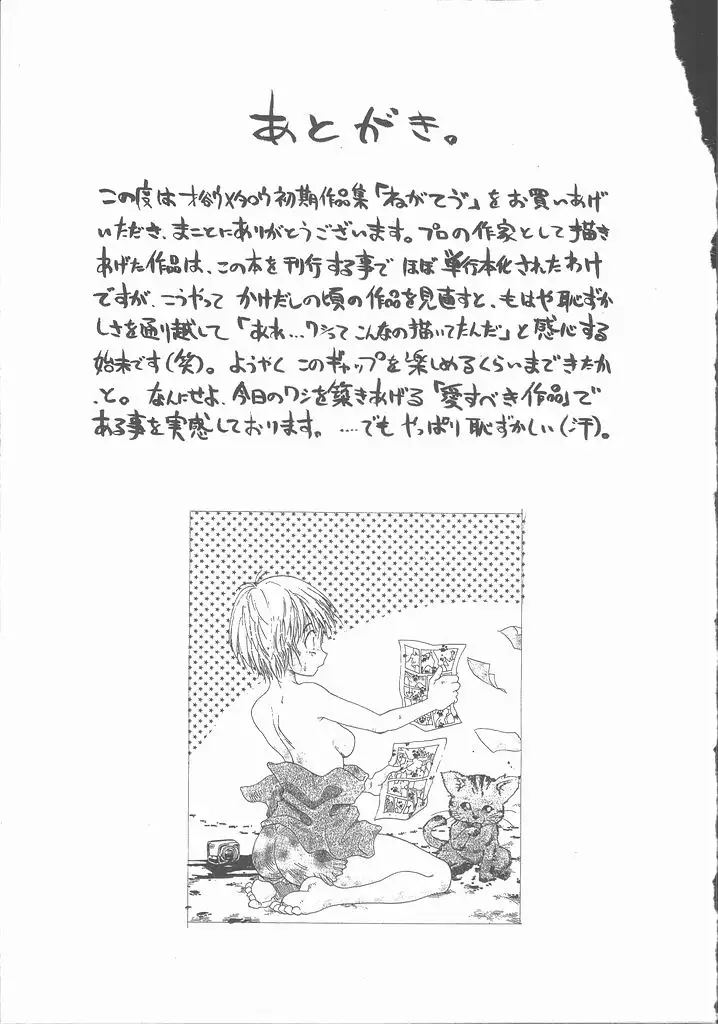 あとがき。
この度は才谷ウメタロウ初期作品集「ねがてぃう゛」をお買いあげ
いただき、まことにありがとうございます。プロの作家として描き
あげた作品は、この本を刊行する事でほぼ単行本化されたわけ
ですが、こうやって かけだしの頃の作品を見直すと、もはや恥ずか
しさを通り越して「あれ…ワシって こんなの描いてたんだ」と感心する
始末です(笑)。ようやく このギャップを楽しめるくらいまできたか
、と。なんにせよ、今日のワシを築きあげる「愛すべき作品」で
ある事を実感しております。……でも やっぱり恥ずかしい(汗)。